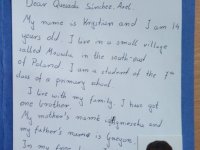 Dear Quesada Sánchez, Axel.
My name is Krystian and I am 14
years old. I live in a small village
called in the south-east
of Poland. I am a student of the 7th
class of a primary school.
I live with my family. I have got
one brother.
My mother's name is Agnieszka and
my father's name is
In my free